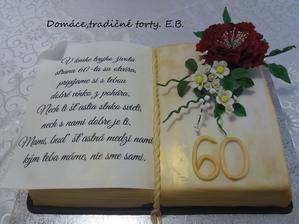 Domáce,tradičné torty. E.B.
V knihe tvojho života
strana 60-ta sa otvára,
pripojme si s tebou
dobré vínko z pohára.
Nech ti šťastia slnko svieti,
nech s nami dobre je ti.
Mami, buď šťastná medzi nami,
kým teba máme, nie sme sami.
60